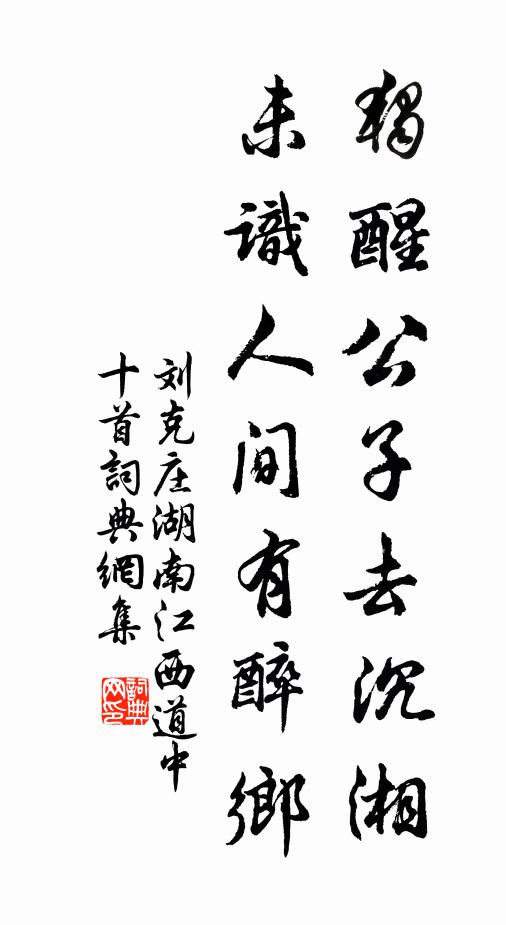 獨醒公子去沉湘
未識人間有醉鄉
刘克庄湖南江西道中
十首詞典網集
詞典
网印